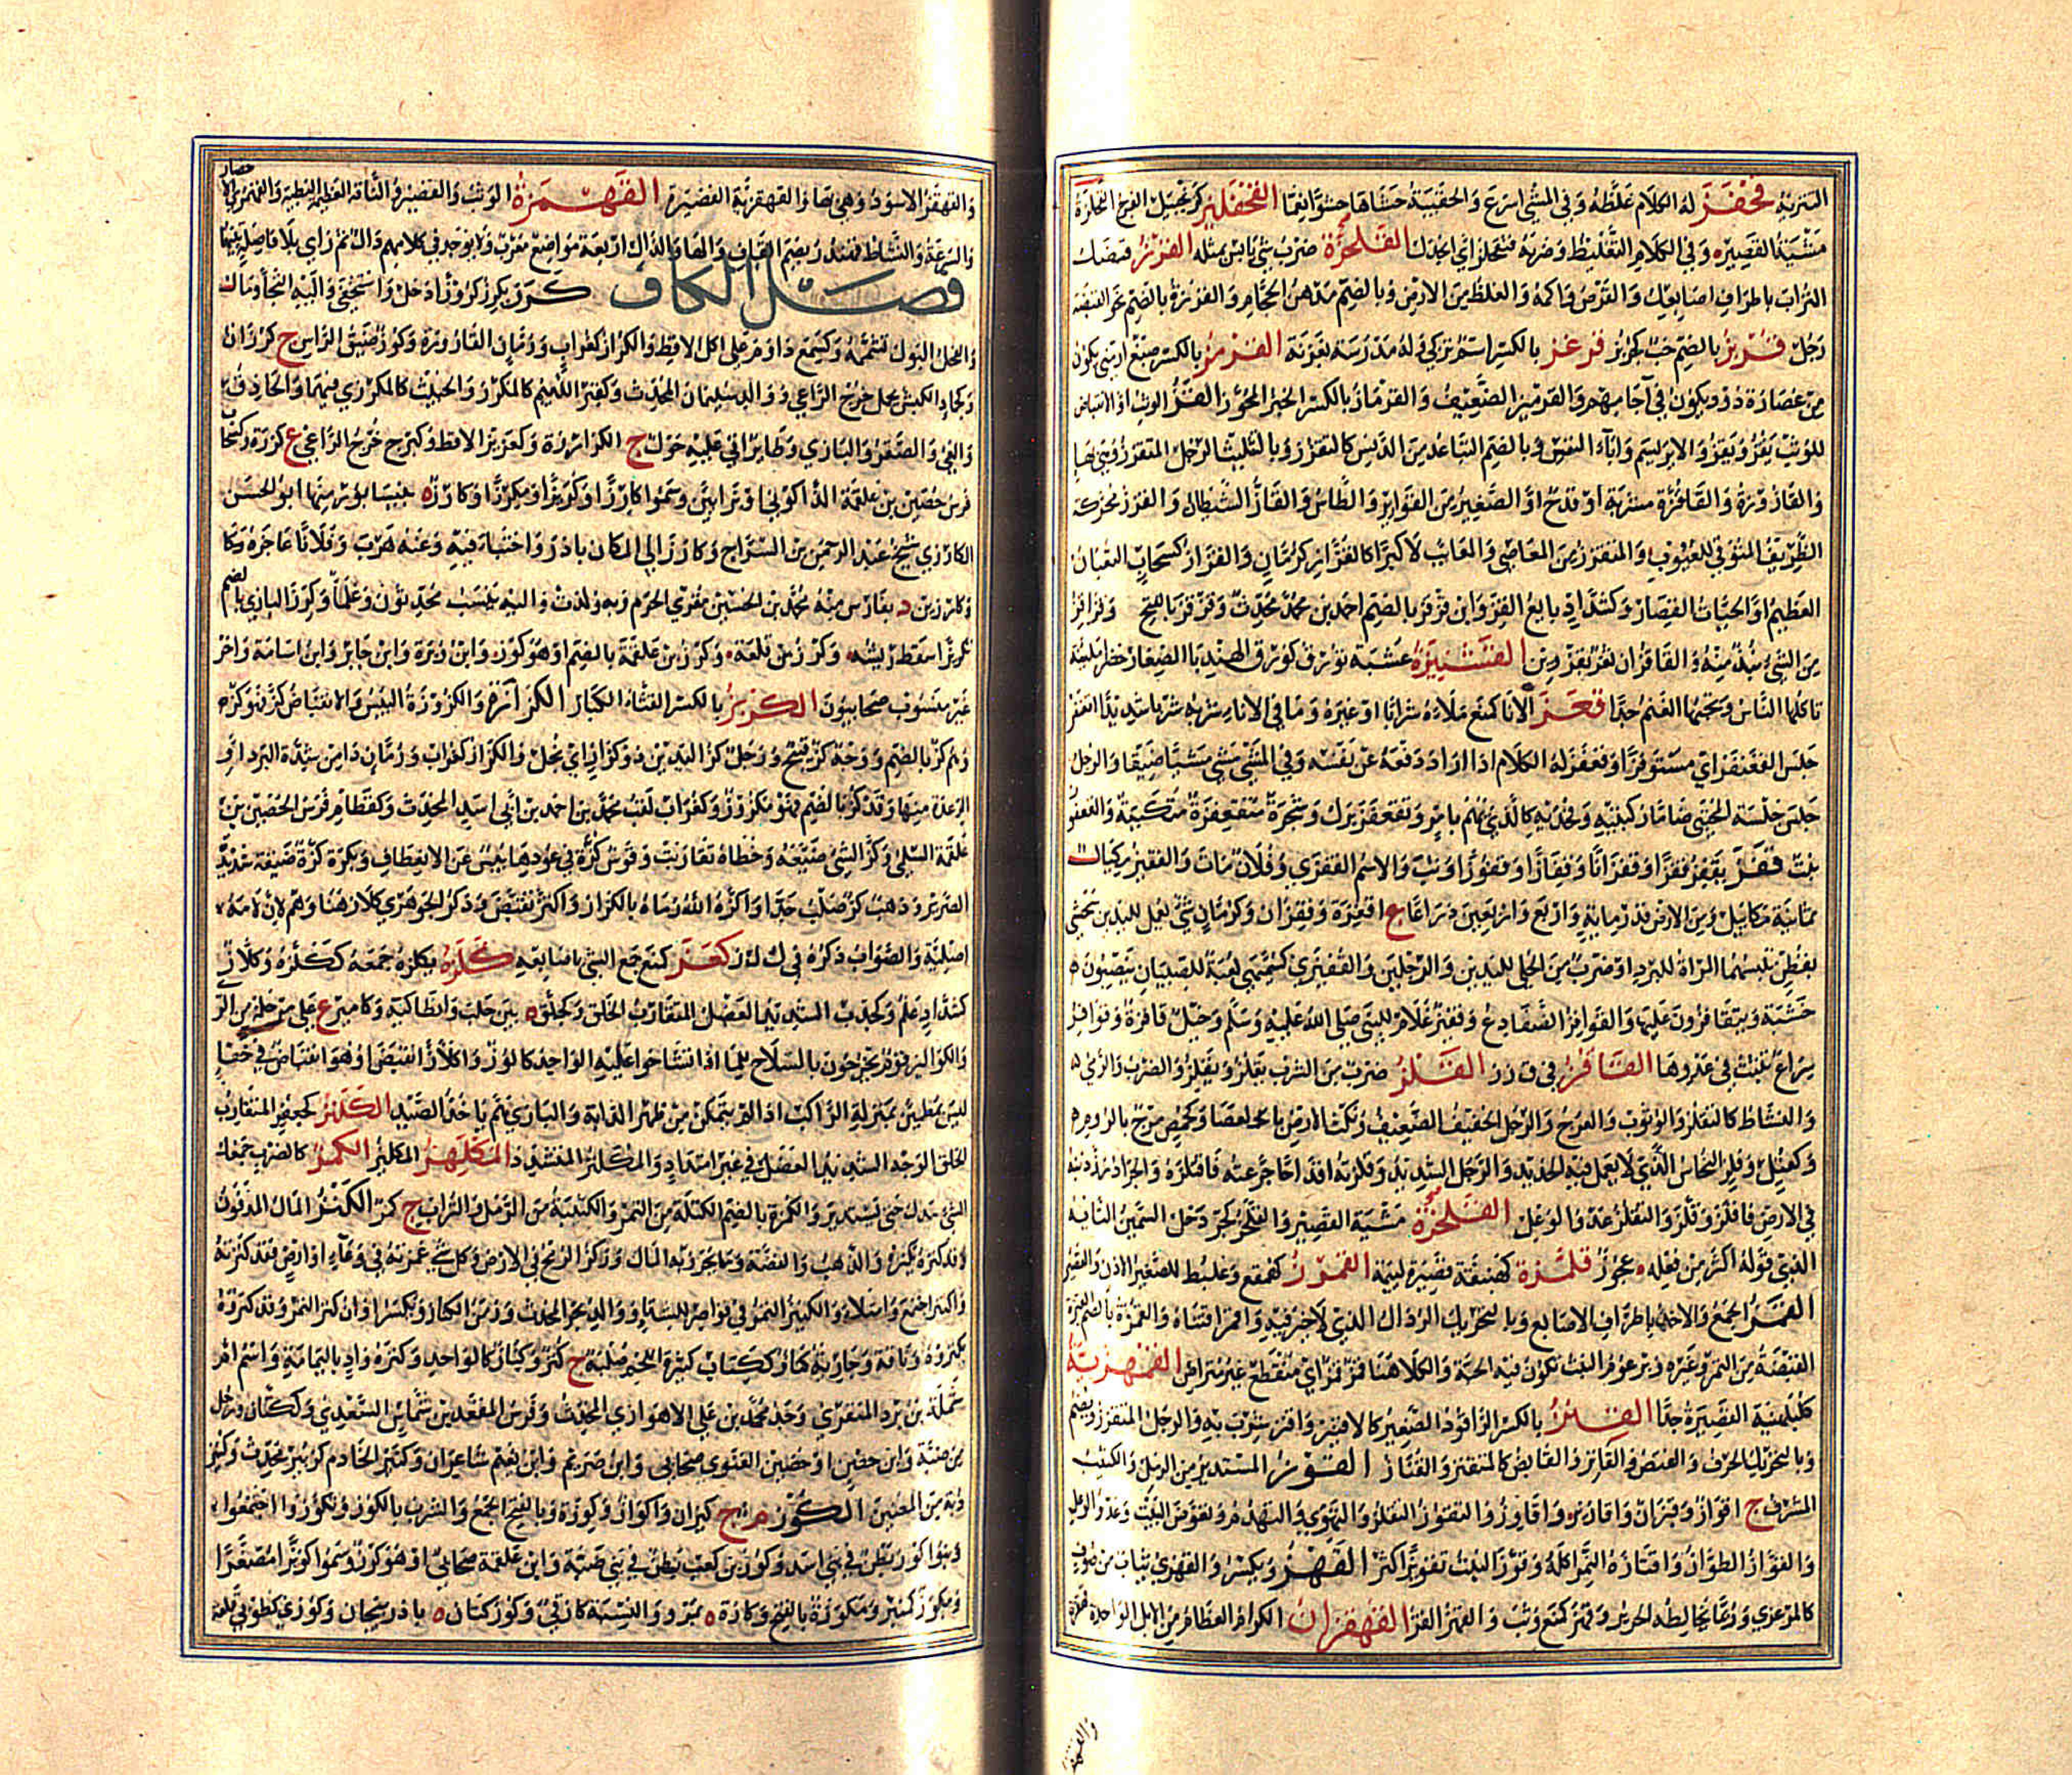 فحفز له الكلام غلظه وفي المشي اسرع والحقيبة حشاها حشوا نعما القحفليز كزنجبيل الفرج القحلزة
مشية القصيره وفي الكلام التغليظ وضربه فتقحلز اي انجدل القلحزة ضرب شي يابس بمثله القرز قبضك
التراب باطراف اصابعك والقرص واكمة والغلظ من الارض وبالضم مدهن الحجام والقرزة بالضم نحو القبضة
رجل قربز بالضم خب كجربز قرغز بالكسر اسم تركي وله مدرسة بغزنة القرمز بالكسر صبغ ارمني يكون
من عصارة دود يكون في آجامهم والقرميز الضعيف والقرماز بالكسر الخبز المحور القز الوثب او الانقباض
للوثب يقز ويقز والابريسم واباء النفس وبالضم التباعد من الدنس كالتقزز وبالتثليث الرجل المتقزز وهي بهاء
والقازوزة والقاقزة مشربة او قدح او الصغير من القوارير والطاس والقاز الشيطان والقزز محركة
الظريف المتوقي للعيوب والمتقزز من المعاصي والمعايب لا كبرا كالقزاز كرمان والقزاز كسحاب الثعبان
العظيم او الحيات القصار وكشداد بايع القز وابن قزقز بالضم احمد بن محمد محدث وقزقز بالفتح
من الشي نبذ منه والقاقزان ثغر بقزوين القشنيزة عشبة تورق كورق الهندبا الصغار خضرا
تاكلها الناس وتحبها الغنم جدا قعز الانا كمنع ملاه شرابا او غيره وما في الانا شربه شربا شديدا اقعنفز
جلس القعفزى اي مستوفزا وقعفز له الكلام اذا اراد دفعه عن نفسه وفي المشي مشى مشيا ضيقا والرجل
جلس جلسة المحتبي ضاما ركبتيه وفخذيه كالذي يهم بامر وتقعفز برك وشجرة متقعفزة متكببة والقعفز
نبت قفز يقفز قفزا وقفزانا وقفازا وقفوزا وثب والاسم القفزى وفلان مات والقفيز مكيال
ثمانية مكاييل ومن الارض قدر ماية واربع واربعين ذراعا ج اقفزة وقفزان وكرمان شي يعمل لليدين يحشى
بقطن تلبسهما المراة للبرد او ضرب من الحلي لليدين والرجلين والقفيزى كسميهى لعبة للصبيان ينصبون
خشبة ويتقافزون عليها والقوافز الضفادع وقفيز غلام للنبي صلى الله عليه وسلم وخيل قافزة وقوافز
سراع تثبت في عدوها القاقز في ق ز ز القلز ضرب من الشرب يقلز ويقلز والضرب والرمي
والنشاط كالتقلز والوثوب والعرج والرجل الخفيف الضعيف ونكت الارض بالعصا وكحمص مرج بالروم
وكعتل وفلز النحاس الذي لا يعمل فيه الحديد والرجل الشديد وقلزته اقداحا جرعته فاقتلزها والجرادة رز ذنبه
في الارض فاقلز وقلز والتقلز عدو الوعل القلحزة مشية القصير والقلحز كجردحل السمين التايه
الذي قوله اكثر من فعله عجوز قلمزة كهبنقة قصيرة لئيمة القمرز كهمقع وعلبط للصغير الاذن والقصير
القمز الجمع والاخذ باطراف الاصابع وبالتحريك الرذال الذي لا خير فيه واقمز اقتناه والقمزة بالضم
القبضة من التمر وغيره وبرعوم النبت تكون فيه الحبة والكلا هنا قمز قمز اي متقطع غير متراكم القمهزية
كبلهنية القصيرة جدا القنز بالكسر الراقود الصغير كالاقنيز واقنز شرب به والرجل المتقزز ويضم
وبالتحريك الحرف والقنص والقانز القانص كالمتقنز والقناز القوز المستدير من الرمل والكثيب
المشرف ج اقواز وقيزان واقاوز واقاويز والتقوز التقلز والتهوي والتهدم وتقوض البيت وعدو الوعل
والقواز الطوان واقتازه النمر اكله وتوز النبت تقويزا اكثر القهز ويكسر والقهزي ثياب من صوف
كالمرعزى وربما يخالطه الحرير وقهز كمنع وثب والقهيز القز القهقزان الكرام العظام من الابل الواحدة قهقز
والقهقز الاسود وهي بهاء والقهقزية القصيرة القهمزة الوثب والقصيرة والناقة العظيمة البطيئة والقهمزى الاحضار
والسرعة والنشاط قهندز بضم القاف والهاء والدال اربعة مواضع معرب ولا يوجد في كلامهم دال ثم زاي بلا فاصلة بينهما
فصل الكاف كرز يكرز كروزا دخل واستخفى واليه التجا ومال
والفحل البول تشممه وكسمع داوم على اكل الاقط والكراز كغراب ورمان القارورة وكوز ضيق الراس ج كرزان
وكجاد الكبش يحمل خرج الراعي ووالد سليمان المحدث وكقبر اللئيم كالمكرز والخبيث كالمكرزي فيهما والحاذق
والعيي والصقر والبازي وطاير اتى عليه حول ج الكرارزة وكعزيز الاقط وكبرج خرج الراعي ج كرزة وكسحاب
فرس حصين بن علقمة الذكواني وترابي وسموا كارزا وكريزا ومكرزا وكارزه بنيسابور منها ابو الحسن
الكارزي شيخ عبد الرحمن بن السراج وكارز الى المكان بادر واختبا فيه وعنه هرب وفلانا عاجزه
وكارزين د بفارس منه محمد بن الحسين مقرئ الحرم وبه ولدت واليه ينسب محدثون وعلما وكرز البازي بالضم
تكريزا سقط ريشه وكرز من قلعة وكرز بن علقمة بالضم او هو كوز وابن وبرة وابن جابر وابن اسامة واخر
غير منسوب صحابيون الكرزيز بالكسر القثاء الكبار الكزازة والكزوزة اليبس والانقباض كز فهو كز
وهم كز بالضم ووجه كز قبيح ورجل كز اليدين ذو كزز اي بخل والكزاز كغراب ورمان دا من شدة البرد او
الرعدة منها وقد كز بالضم فهو مكزوز وكغراب لقب محمد بن احمد بن ابي اسد المحدث وكقطام فرس الحصين بن
علقمة السلمي وكز الشي ضيقه وخطاه تقاربت وقوس كزة في عودها يبس عن الانعطاف وبكرة كزة ضيقة شديدة
الصرير وذهب كز صلب جدا واكزه الله رماه بالكزاز واكتز تقبض وذكر الجوهري كلاز هنا وهم لان لامه
اصلية والصواب ذكره في ك ل ز كعز كمنع جمع الشي باصابعه كلزه يكلزه جمعه ككلزه وكلاز
كشداد علم وكخدب الشديد العضل المتقارب الخلق وكجلق بين حلب وانطاكية وكامير ع على مرحلة من الري
والكوالز قوم يخرجون بالسلاح لما اذا تشاحوا عليه الواحد كالوز واكلاز انقبض او هو انقباض في خفا
ليس بمطمئن بمنزلة الراكب اذا لم يتمكن من ظهر الدابة والبازي هم ياخذ الصيد الكلنز كجعفر المتقارب
الخلق الوجه الشديد العضل في غير امتداد والمكلئز المتشدد المكلهز المكلئز الكمز كالضرب جمعك
الشي بيدك حتى تستدير والكمزة بالضم الكتلة من التمر والكثيبة من الرمل والتراب ج كمز الكنز المال المدفون
وقد كنزه يكنزه والذهب والفضة وما يحرز به المال وركز الرمح في الارض وكل شي غمزته في وعاء او ارض فقد كنزته
واكتنز اجتمع وامتلا والكنيز التمر في قواصر للشتاء ووالد بحر المحدث وزمن الكناز ويكسر اوان كنز التمر وقد كنزوه
يكنزوه وناقة وجارية كناز ككتاب كثيرة اللحم صلبة ج كنز وكناز كالواحد وكنزة واد باليمامة واسم ام
شملة بن برد المنقري وجد محمد بن علي الاهوازي المحدث وفرس المقعد بن شماس السعدي وككتان رجل
من ضبة وابن حصن او حصين الغنوي صحابي وابن صريم وابن نعيم شاعران وكنيز الخادم كزبير محدث وكنيز
دبة من المغنين الكوز م ج كيزان واكواز وكوزة وبالفتح الجمع والشرب بالكوز وتكوزوا اجتمعوا
وبنو كوز بطن في بني اسد وكوز بن كعب بطن في بني ضبة وابن علقمة صحابي او هو كرز وسموا كويزا مصغرا
ومكوز كمنبر ومكوزة بالفتح وكازه بمرو والنسبة كازقي وكوزكنان باذربيجان وكوزى كطوبى قلعة